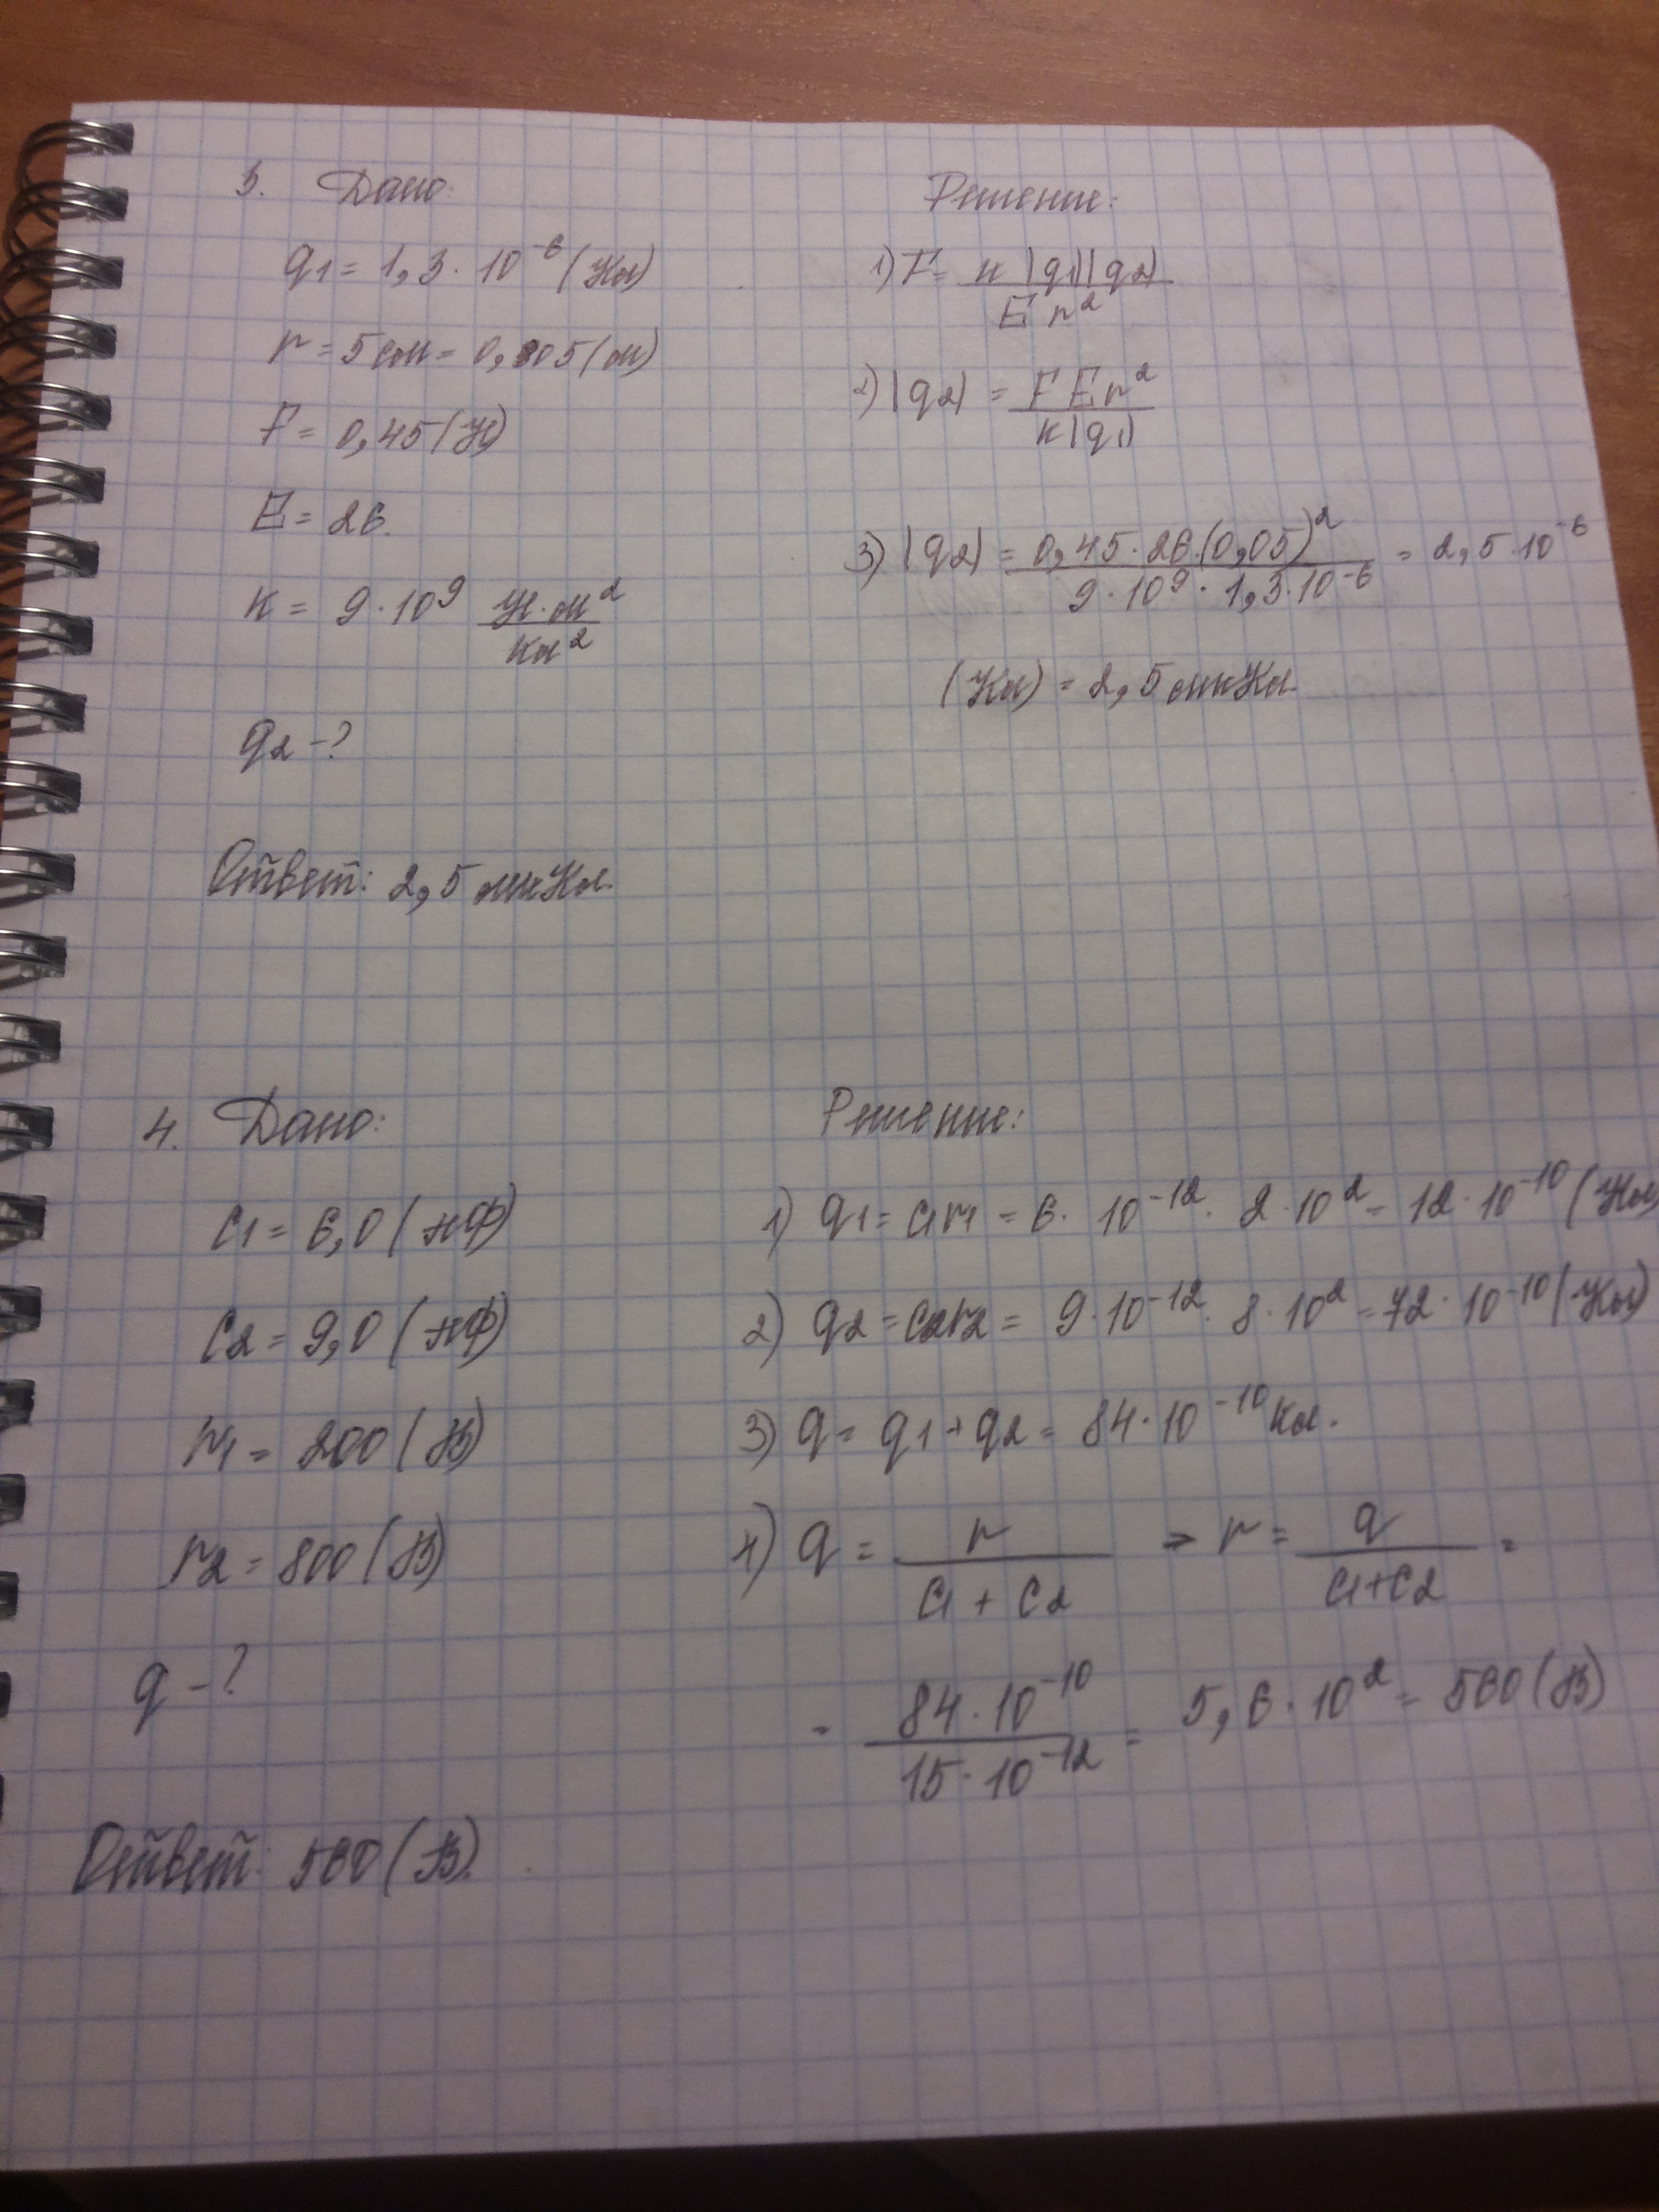 3. Дано:
q1 = 1,3 · 10^-6 (Кл)
r = 5 см = 0,05 (м)
F = 0,45 (Н)
E = 26.
k = 9 · 10^9 Н·м^2 / Кл^2
q2 - ?
Ответ: 2,5 мкКл.
Решение:
1) F = k |q1| |q2| / E r^2
2) |q2| = F E r^2 / k |q1|
3) |q2| = 0,45 · 26 · (0,05)^2 / 9 · 10^9 · 1,3 · 10^-6 = 2,5 · 10^-6
(Кл) = 2,5 мкКл.
4. Дано:
C1 = 6,0 (пФ)
C2 = 9,0 (пФ)
r1 = 200 (В)
r2 = 800 (В)
q - ?
Решение:
1) q1 = C1r1 = 6 · 10^-12 · 2 · 10^2 = 12 · 10^-10 (Кл)
2) q2 = C2r2 = 9 · 10^-12 · 8 · 10^2 = 72 · 10^-10 (Кл)
3) q = q1 + q2 = 84 · 10^-10 Кл.
4) q = r / C1 + C2 => r = q / C1+C2 =
= 84 · 10^-10 / 15 · 10^-12 = 5,6 · 10^2 = 560 (В)
Ответ: 560 (В).